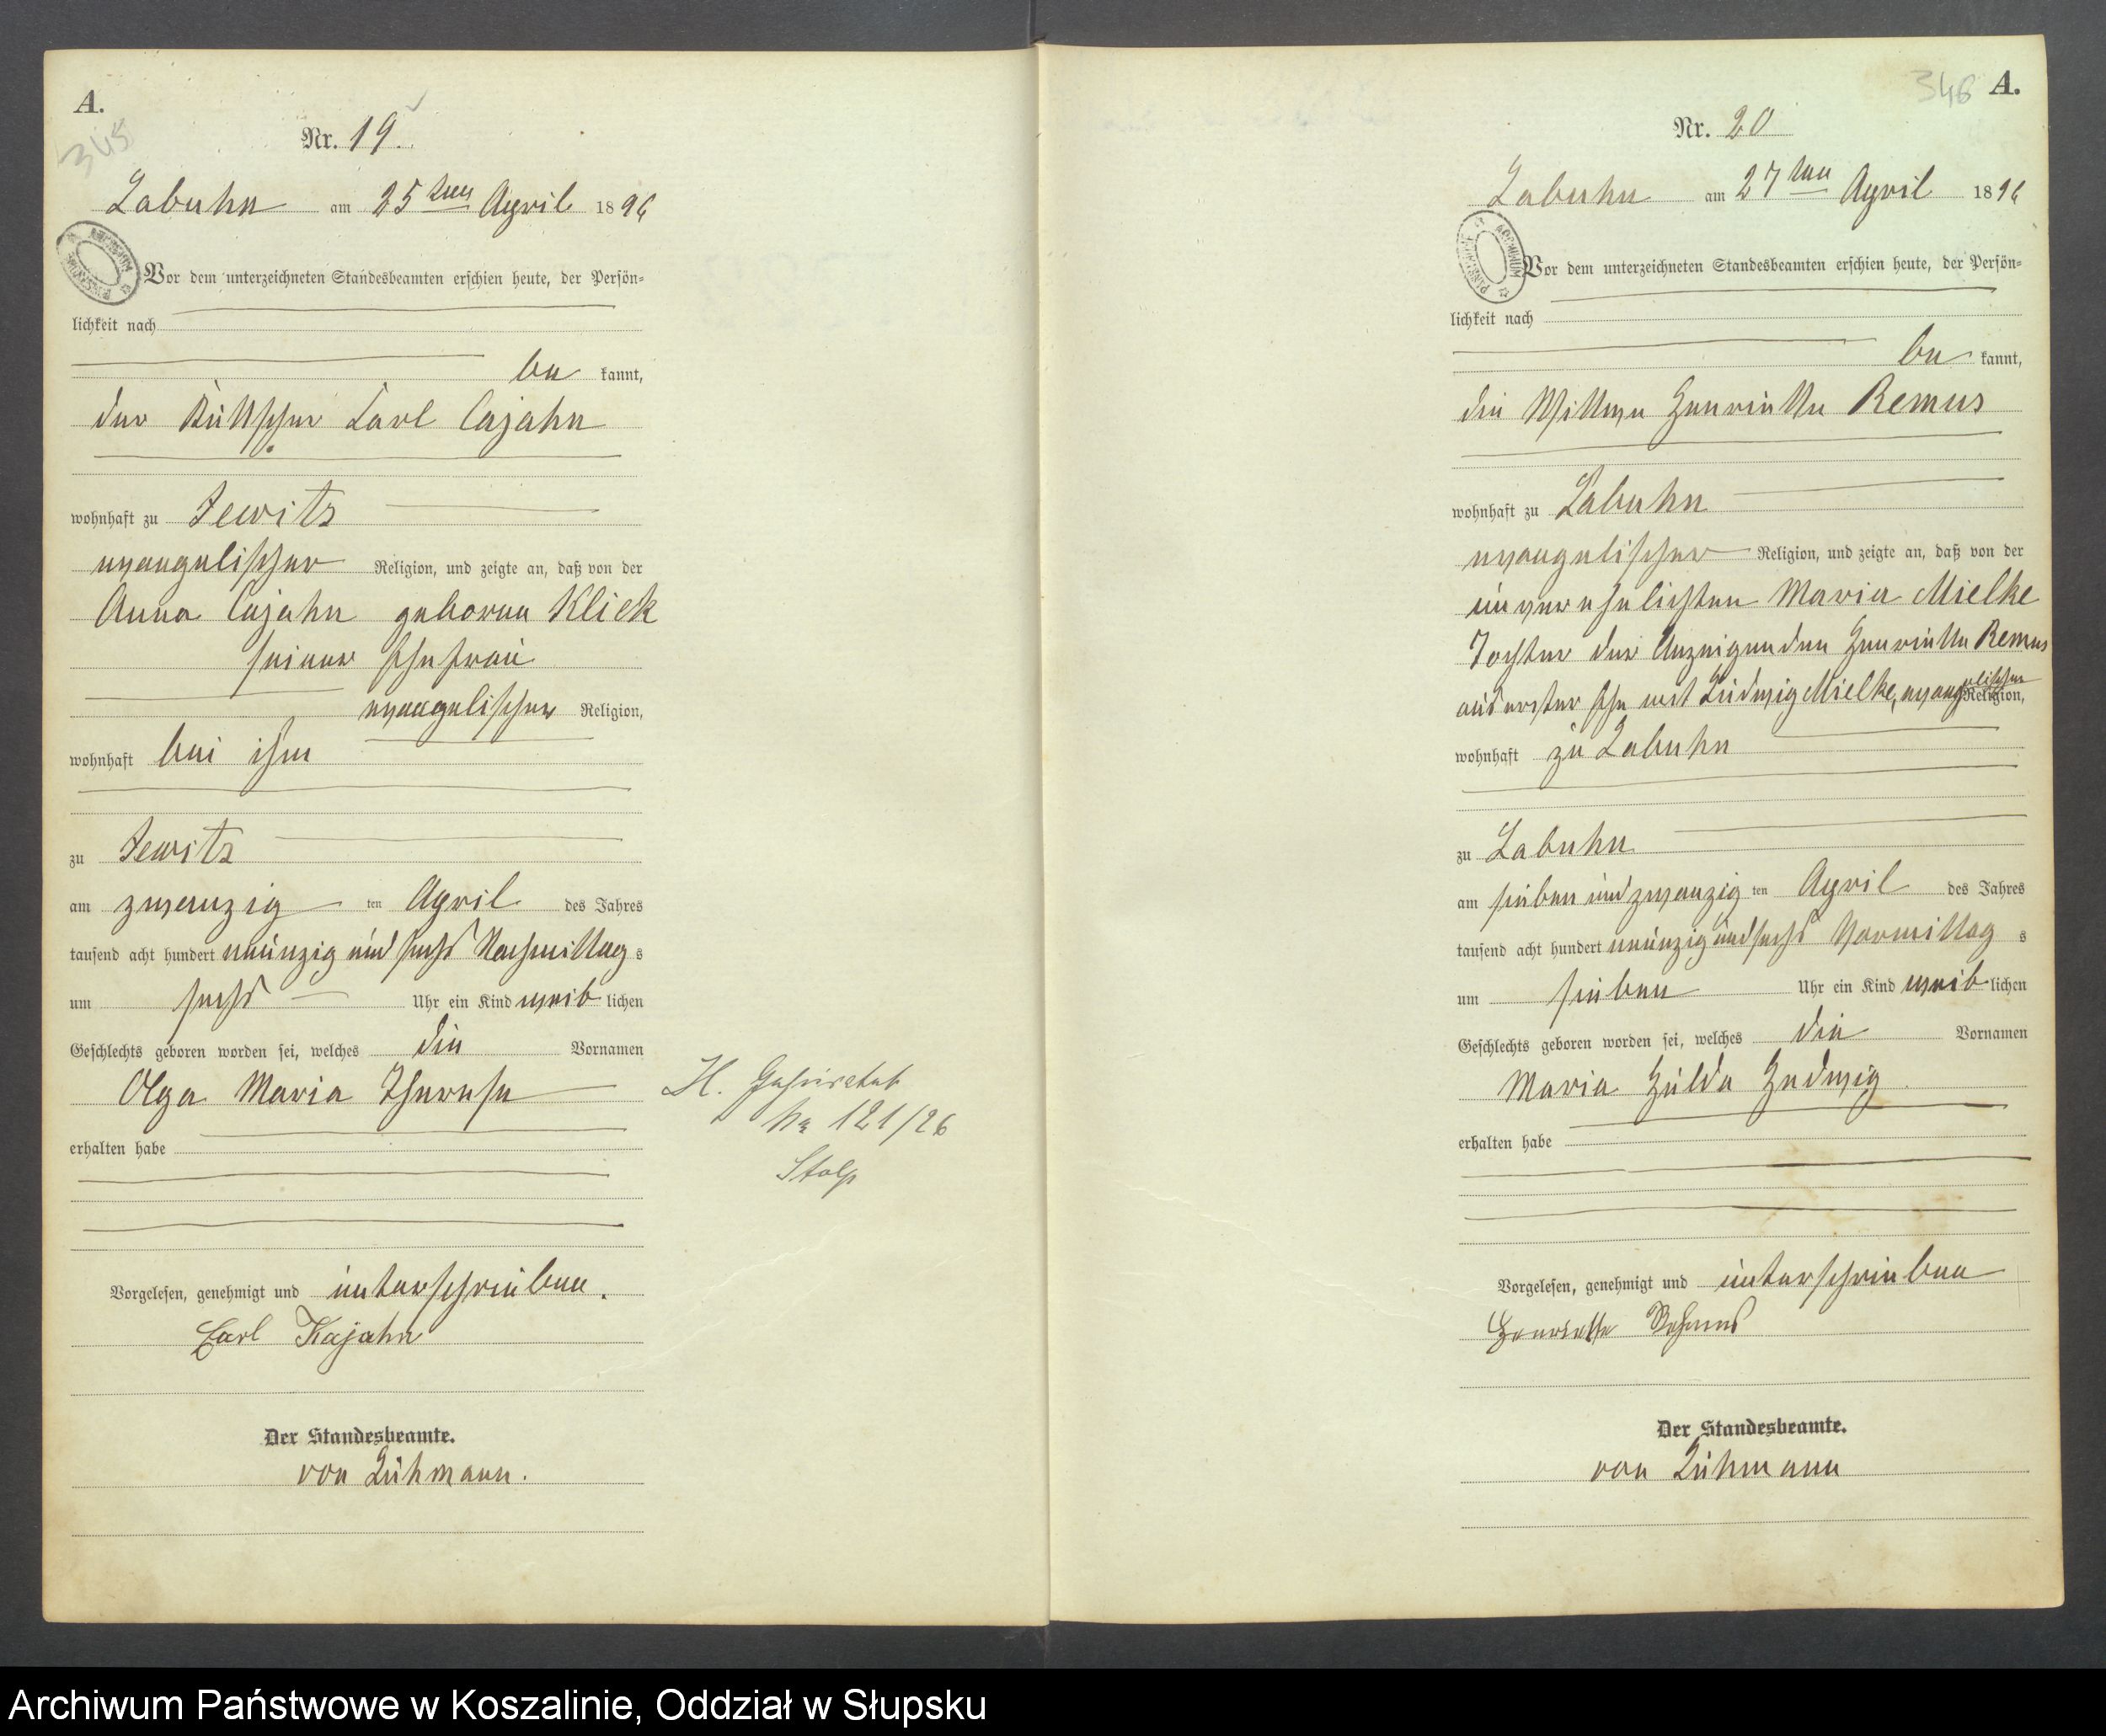 A.
345
Nr. 19.
Labuhn am 25ten April 1896
Vor dem unterzeichneten Standesbeamten erschien heute, der Persön-
lichkeit nach
be kannt,
der Büttcher Carl Cajahn
wohnhaft zu Jewitz
evangelischer Religion, und zeigte an, daß von der
Anna Cajahn geboren Klick
seiner Ehefrau
evangelischer Religion,
wohnhaft bei ihm
zu Jewitz
am zwanzig ten April des Jahres
tausend acht hundert neunzig und sechs Nachmittag s
um sechs Uhr ein Kind weib lichen
Geschlechts geboren worden sei, welches die Vornamen
Olga Maria Therese
erhalten habe
H. Geheiratet
No 121/26
Stolp
Vorgelesen, genehmigt und unterschrieben.
Carl Kajahn
Der Standesbeamte.
von Lühmann.
346 A.
Nr. 20
Labuhn am 27ten April 1896
Vor dem unterzeichneten Standesbeamten erschien heute, der Persön-
lichkeit nach
be kannt,
die Wittwe Henriette Remus
wohnhaft zu Labuhn
evangelischer Religion, und zeigte an, daß von der
unverehelichten Maria Mielke
Tochter der Anzeigenden Henriette Remus
aus erster Ehe mit Ludwig Mielke, evangelischer Religion,
wohnhaft zu Labuhn
zu Labuhn
am sieben und zwanzig ten April des Jahres
tausend acht hundert neunzig und sechs Vormittag s
um sieben Uhr ein Kind weib lichen
Geschlechts geboren worden sei, welches die Vornamen
Maria Hulda Hedwig
erhalten habe
Vorgelesen, genehmigt und unterschrieben
Henriette
Der Standesbeamte.
von Lühmann
Archiwum Państwowe w Koszalinie, Oddział w Słupsku